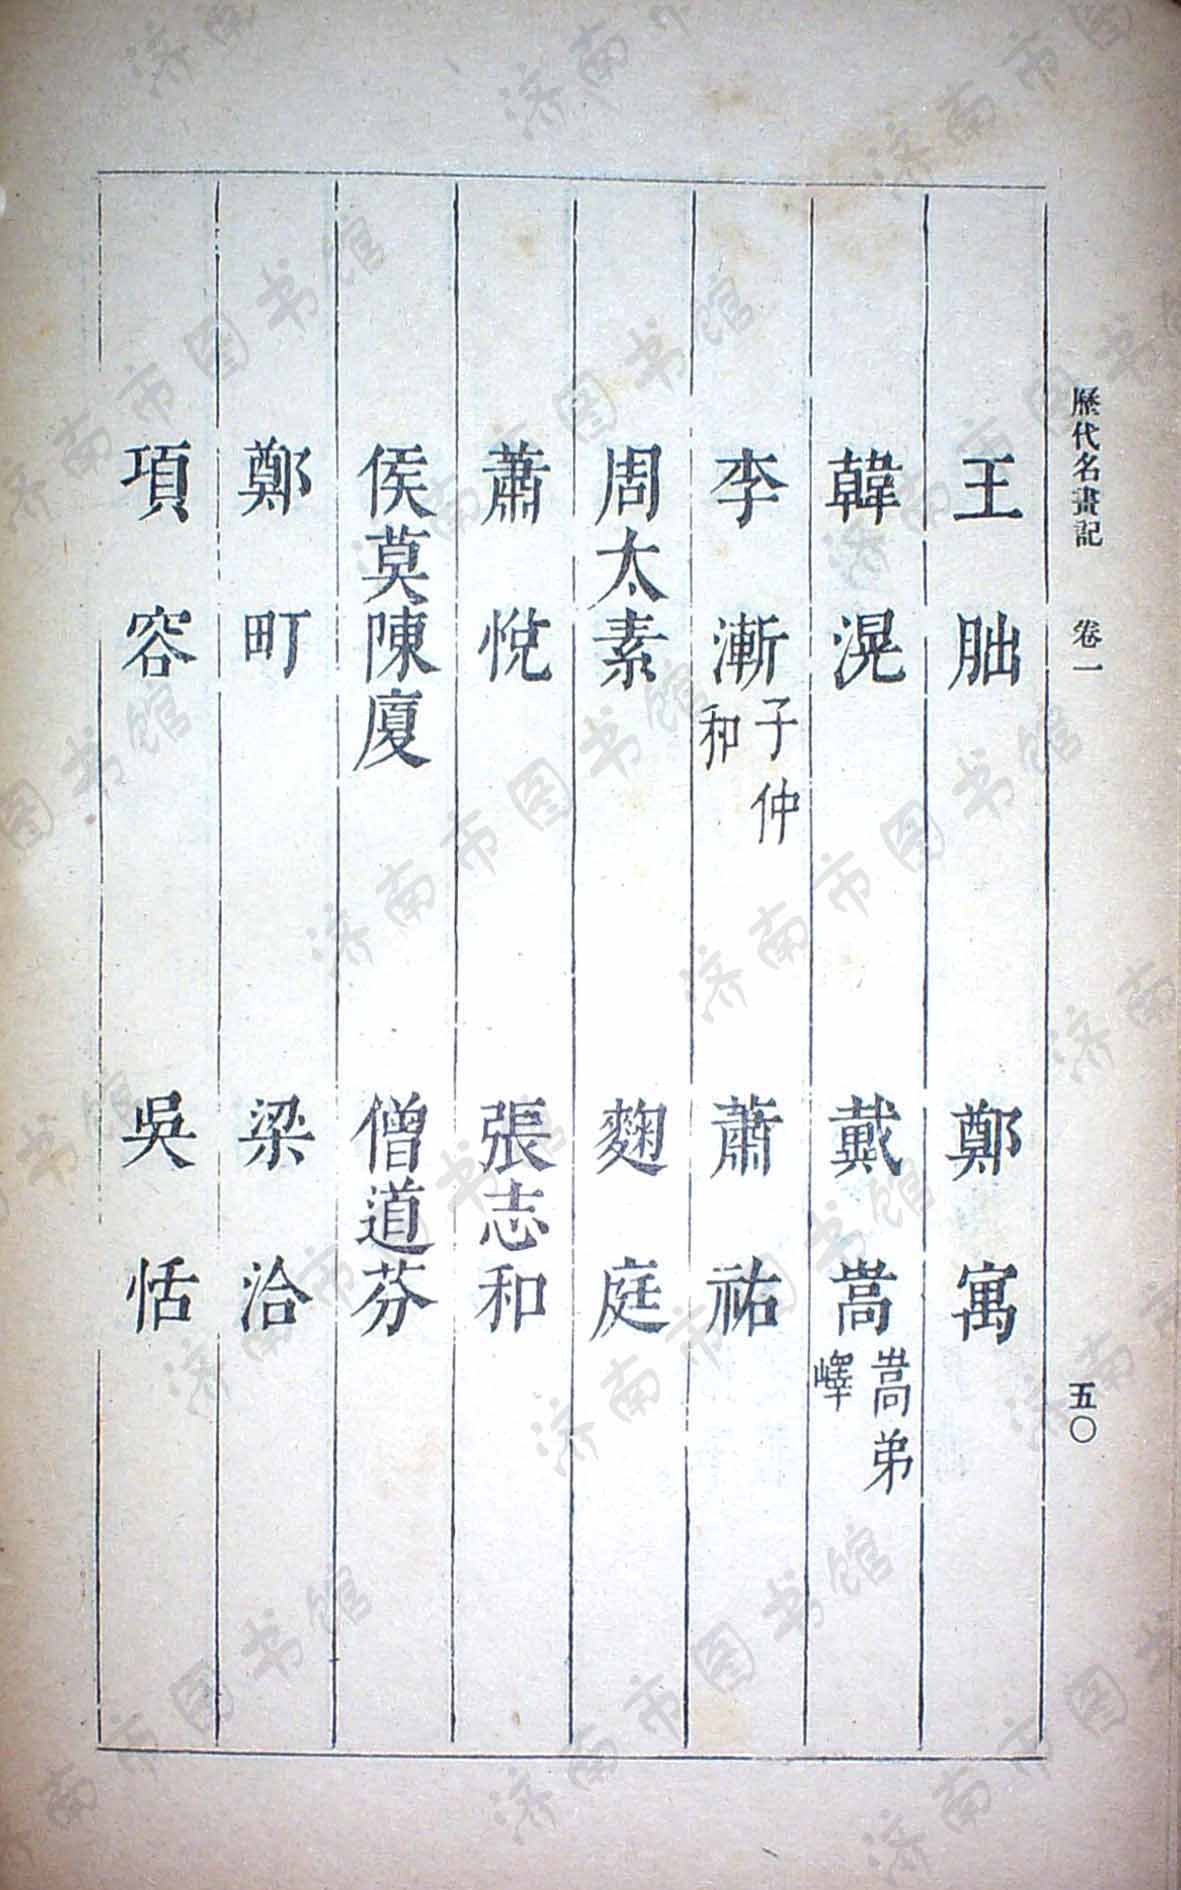 歷代名畫記 卷一 五〇
王朏 鄭寓
韓滉 戴嵩 嵩弟嶧
李漸 子仲和 蕭祐
周太素 麴庭
蕭悅 張志和
侯莫陳廈 僧道芬
鄭町 梁洽
項容 吳恬
济南市图书馆